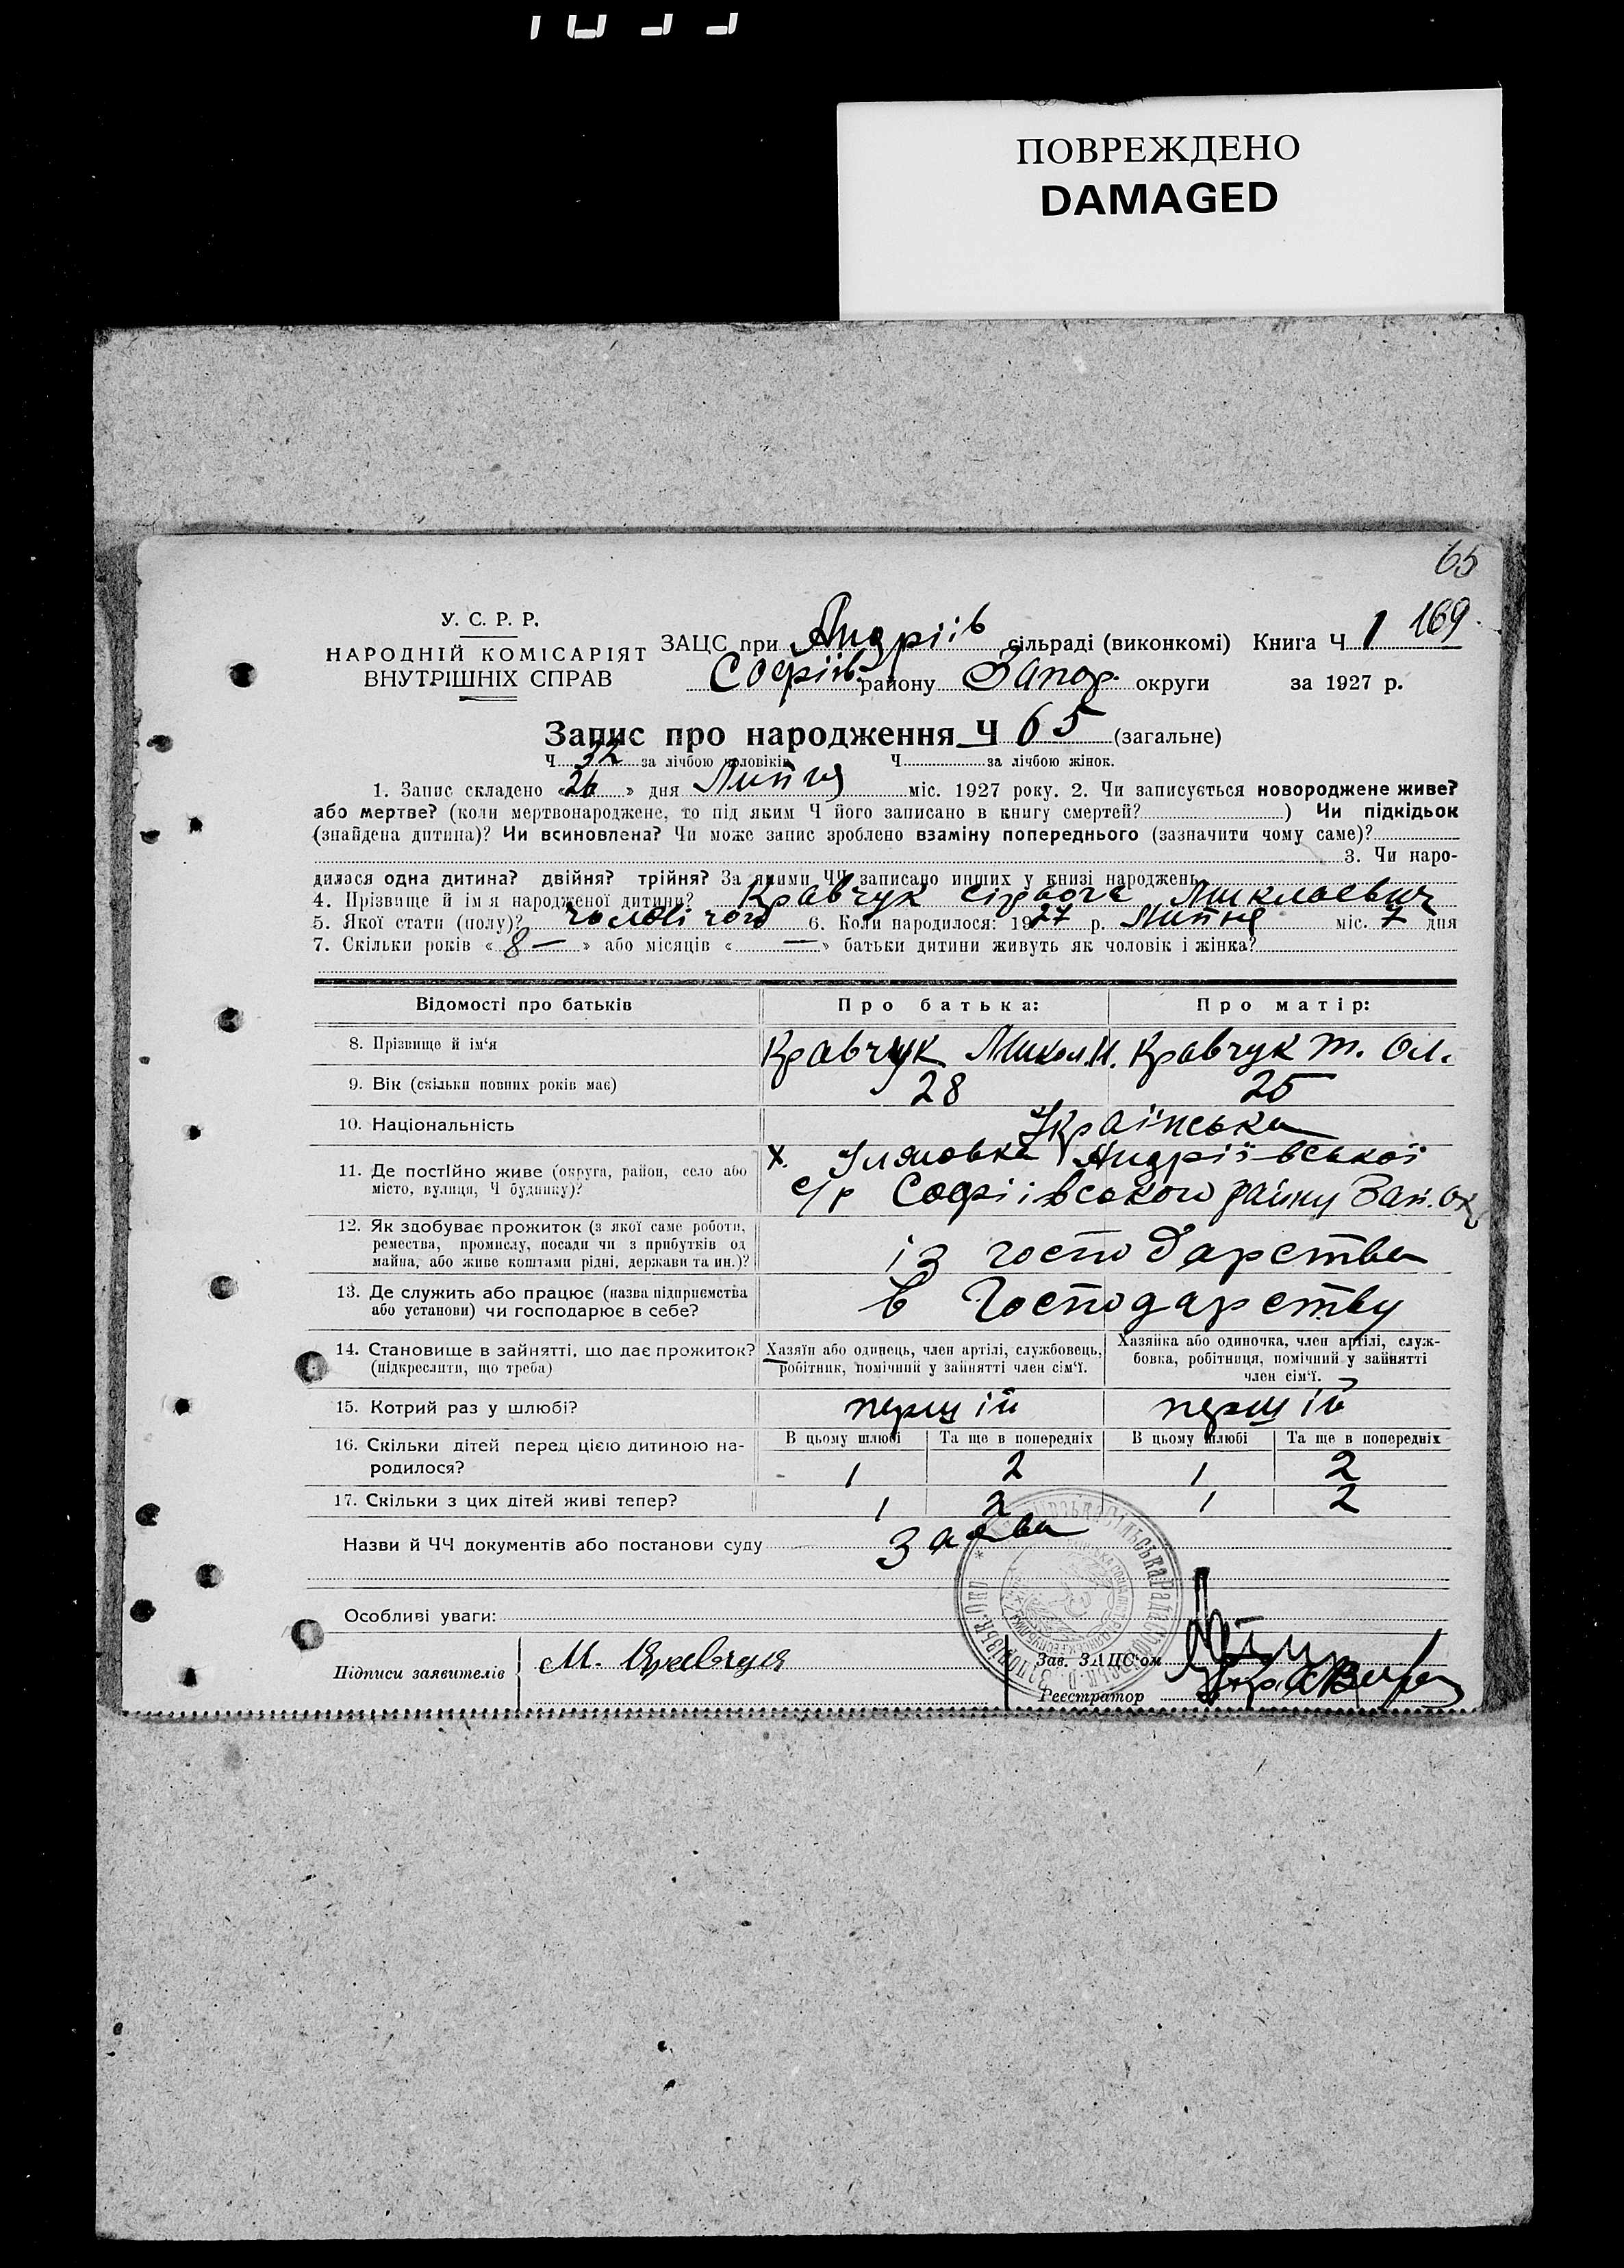 ПОВРЕЖДЕНО
DAMAGED
65
У. С. Р. Р.
НАРОДНІЙ КОМІСАРІЯТ
ВНУТРІШНІХ СПРАВ
ЗАЦС при Андріїв сільраді (виконкомі) Книга Ч 1 169
Софіїв. району Запор. округи за 1927 р.
Запис про народження Ч 65 (загальне)
Ч 32 за лічбою чоловіків Ч за лічбою жінок.
1. Запис складено «26» дня Липня міс. 1927 року. 2. Чи записується новороджене живе?
або мертве? (коли мертвонароджене, то під яким Ч його записано в книгу смертей? ) Чи підкідьок
(знайдена дитина)? Чи всиновлена? Чи може запис зроблено взаміну попереднього (зазначити чому саме)?
3. Чи наро-
дилася одна дитина? двійня? трійня? За якими ЧЧ записано инших у книзі народжень
4. Прізвище й ім'я народженої дитини? Кравчук Миклаєвич
5. Якої стати (полу)? чоловічого 6. Коли народилося: 1927 р. Липня міс. 7 дня
7. Скільки років «8 —» або місяців « — » батьки дитини живуть як чоловік і жінка?
Відомості про батьків Про батька: Про матір:
8. Прізвище й ім'я Кравчук Микол. И. Кравчук Т. Ол.
9. Вік (скільки повних років має) 28 25
10. Національність Українська
11. Де постійно живе (округа, район, село або місто, вулиця, Ч будинку)? х. Уляновка Андріївської
с/р Софіївського району Зап. ок
12. Як здобуває прожиток (з якої саме роботи,
ремества, промислу, посади чи з прибутків од
майна, або живе коштами рідні, держави та ин.)? із господарства
13. Де служить або працює (назва підприємства
або установи) чи господарює в себе? в Господарству
14. Становище в зайнятті, що дає прожиток?
(підкреслити, що треба)
Хазяїн або одинець, член артілі, службовець,
робітник, помічний у зайнятті член сім'ї.
Хазяйка або одиночка, член артілі, служ-
бовка, робітниця, помічний у зайнятті
член сім'ї.
15. Котрий раз у шлюбі? перший перший
16. Скільки дітей перед цією дитиною на-
родилося?
В цьому шлюбі Та ще в попередніх В цьому шлюбі Та ще в попередніх
1 2 1 2
17. Скільки з цих дітей живі тепер? 1 2 1 2
Назви й ЧЧ документів або постанови суду Заява
Особливі уваги:
Підписи заявителів М. Кравчук
Зав. ЗАЦС'ом
Реєстратор